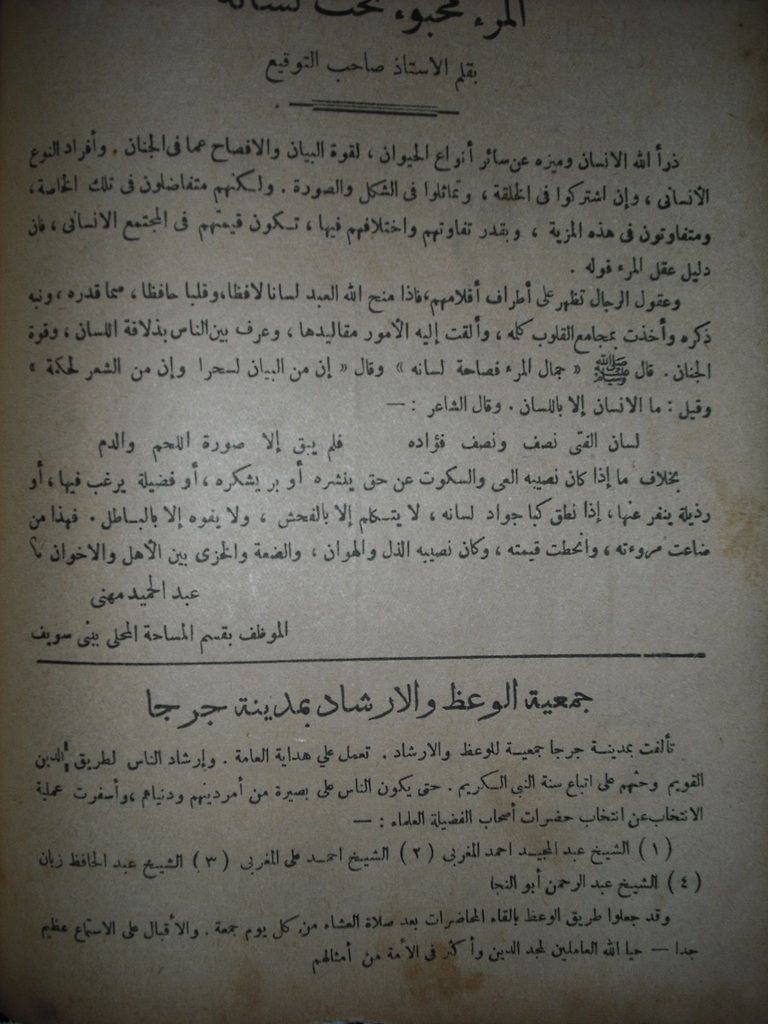 المرء مخبوء تحت لسانه
بقلم الاستاذ صاحب التوقيع
ذرأ الله الانسان وميزه عن سائر أنواع الحيوان ، لقوة البيان والافصاح عما فى الجنان . وأفراد النوع
الانسانى ، وإن اشتركوا فى الخلقة ، وتماثلوا فى الشكل والصورة . ولكنهم متفاضلون فى تلك الخاصة ،
ومتفاوتون فى هذه المزية ، وبقدر تفاوتهم واختلافهم فيها ، تكون قيمتهم فى المجتمع الانسانى ، فان
دليل عقل المرء قوله .
وعقول الرجال تظهر على أطراف أقلامهم ، فاذا منح الله العبد لسانا لافظا ، وقلبا حافظا ، سما قدره ، ونبه
ذكره وأخذت بمجامع القلوب كلمه ، وألقت إليه الأمور مقاليدها ، وعرف بين الناس بذلاقة اللسان ، وقوة
الجنان . قال ﷺ « جمال المرء فصاحة لسانه » وقال « إن من البيان لسحرا وإن من الشعر لحكمة »
وقيل : ما الانسان إلا باللسان . وقال الشاعر : —
لسان الفتى نصف ونصف فؤاده فلم يبق إلا صورة اللحم والدم
بخلاف ما إذا كان نصيبه العى والسكوت عن حق ينشره أو بر يشكره ، أو فضيلة يرغب فيها ، أو
رذيلة ينفر عنها ، إذا نطق كبا جواد لسانه ، لا يتكلم إلا بالفحش ، ولا يفوه إلا بالباطل . فهذا من
ضاعت مروءته ، وانحطت قيمته ، وكان نصيبه الذل والهوان ، والضعة والخزى بين الأهل والاخوان
عبد الحميد مهنى
الموظف بقسم المساحة المحلى ببنى سويف
جمعية الوعظ والارشاد بمدينة جرجا
تألفت بمدينة جرجا جمعية للوعظ والارشاد . تعمل علي هداية العامة . وإرشاد الناس لطريق الدين
القويم وحثهم على اتباع سنة النبى الكريم . حتى يكون الناس على بصيرة من أمر دينهم ودنياهم ، وأسفرت عملية
الانتخاب عن انتخاب حضرات أصحاب الفضيلة العلماء : —
( ١ ) الشيخ عبد المجيد احمد المغربى ( ٢ ) الشيخ احمد على المغربى ( ٣ ) الشيخ عبد الحافظ زيان
( ٤ ) الشيخ عبد الرحمن أبو النجا
وقد جعلوا طريق الوعظ بالقاء المحاضرات بعد صلاة العشاء من كل يوم جمعة . والأقبال على الاستماع عظيم
جدا — حيا الله العاملين لمجد الدين وأكثر فى الأمة من أمثالهم